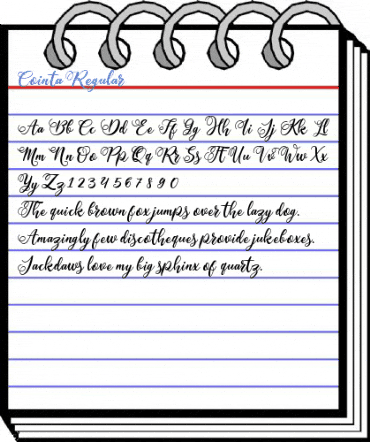 Cointa Regular
Aa Bb Cc Dd Ee Ff Gg Hh Ii Jj Kk Ll
Mm Nn Oo Pp Qq Rr Ss Tt Uu Vv Ww Xx
Yy Zz 1 2 3 4 5 6 7 8 9 0
The quick brown fox jumps over the lazy dog.
Amazingly few discotheques provide jukeboxes.
Jackdaws love my big sphinx of quartz.